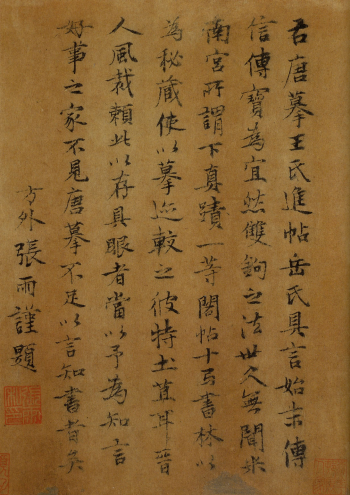 右唐摹王氏進帖岳氏具言始末傳
信傳寶為宜然雙鉤之法世久無聞米
南宮所謂下真蹟一等閣帖十卷書林以
為秘藏使以摹迹較之彼特土苴耳晉
人風裁賴此以存具眼者當以予為知言
好事之家不見唐摹不足以言知書者矣
方外張雨謹題